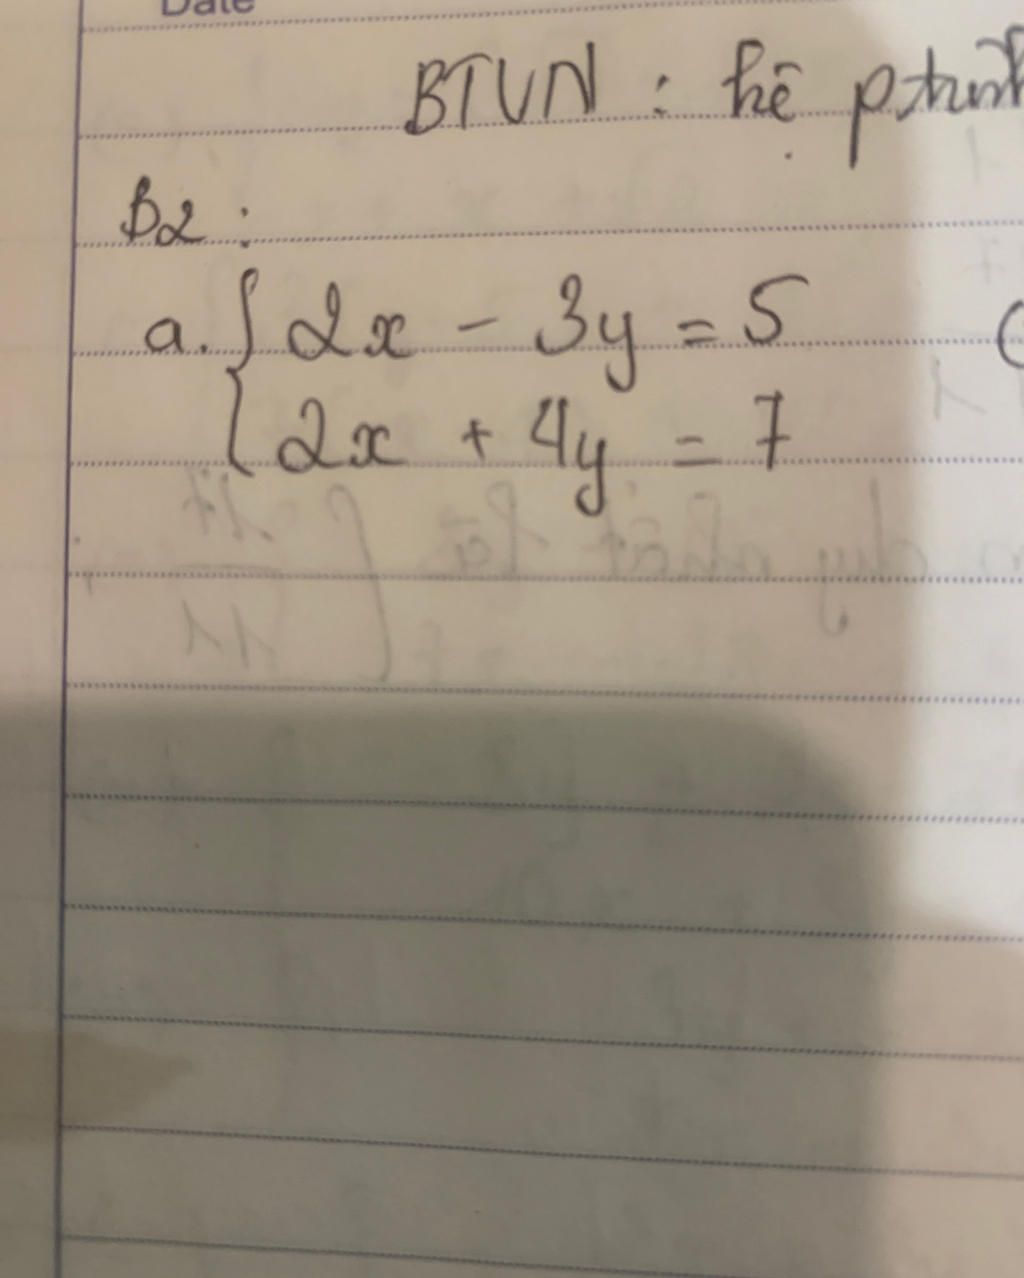 Date
BTVN : hệ ptrình
B2 :
a. { 2x - 3y = 5
2x + 4y = 7